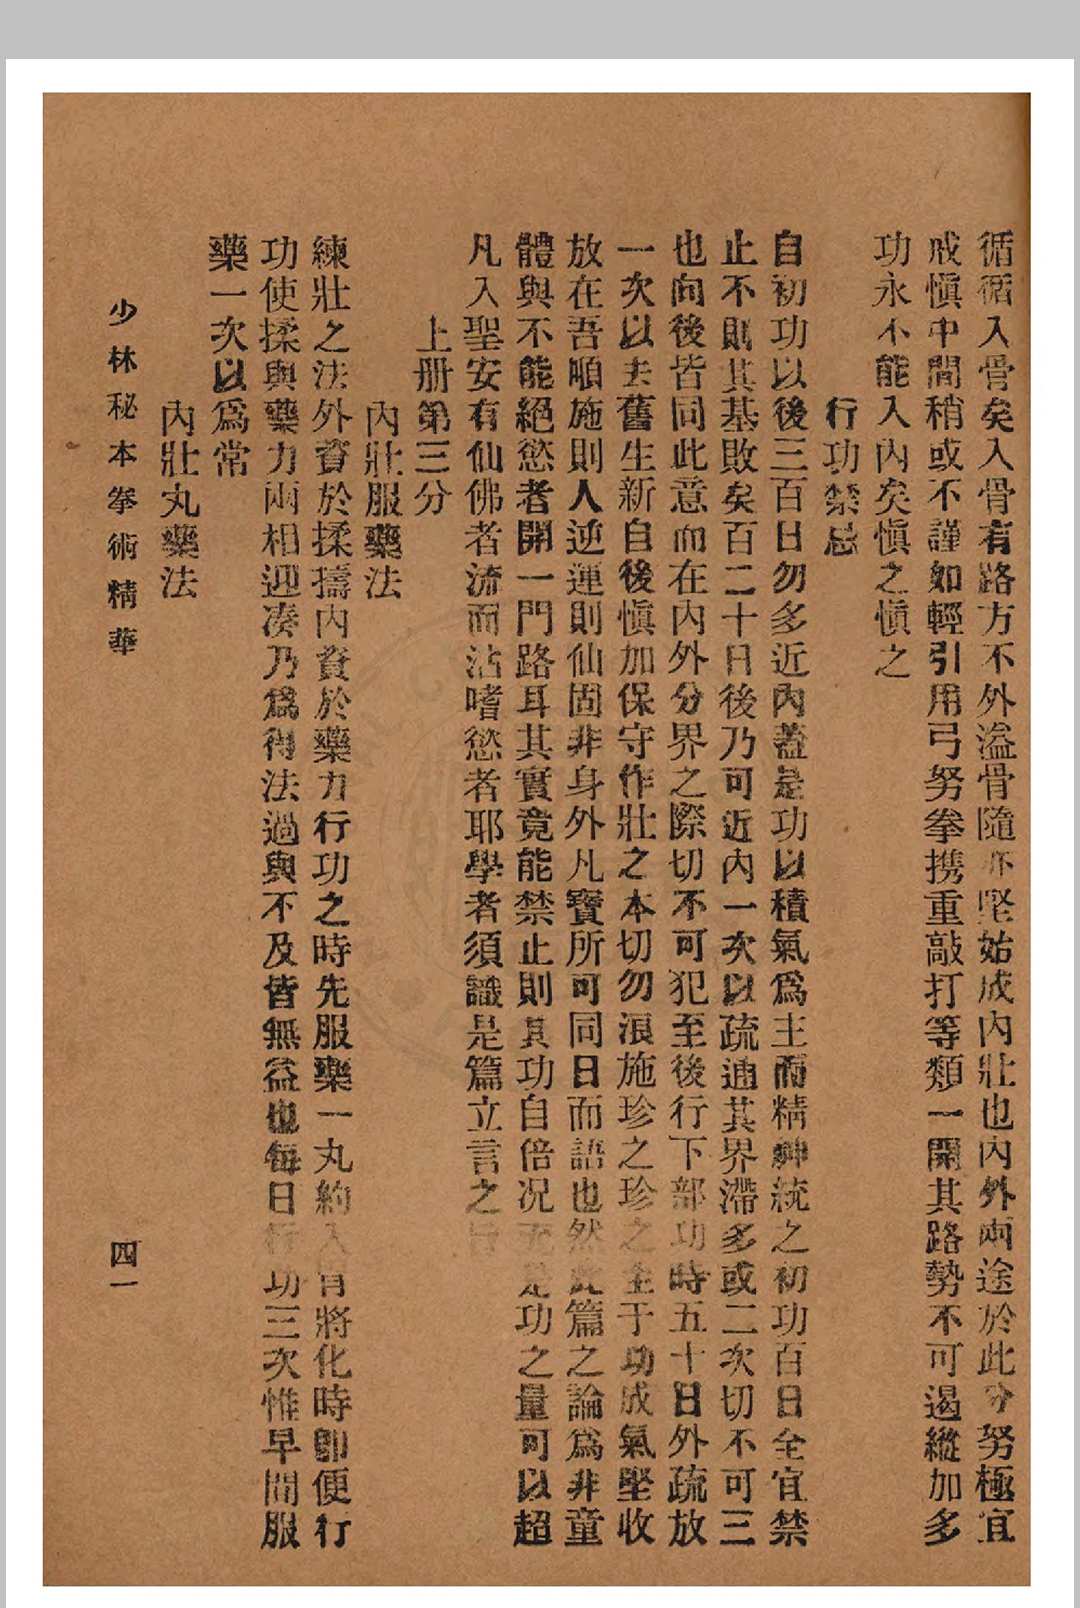 循循入骨矣入骨有路方不外溢骨隨亦堅始成內壯也內外兩途於此分努極宜
戒慎中間稍或不謹如輕引用弓努拳携重敲打等類一開其路勢不可遏縱加多
功永不能入內矣慎之慎之
行功禁忌
自初功以後三百日勿多近內蓋是功以積氣爲主而精神統之初功百日全宜禁
止不則其基敗矣百二十日後乃可近內一次以疏通其界滯多或二次切不可三
也向後皆同此意而在內外分界之際切不可犯至後行下部功時五十日外疏放
一次以去舊生新自後慎加保守作壯之本切勿浪施珍之珍之全于功成氣堅收
放在吾順施則人逆運則仙固非身外凡寶所可同日而語也然此篇之論爲非童
體與不能絕慾者開一門路耳其實竟能禁止則其功自倍况是功之量可以超
凡入聖安有仙佛者流而沾嗜慾者耶學者須識是篇立言之旨
上册第三分
內壯服藥法
練壯之法外資於揉擣內資於藥力行功之時先服藥一丸約入胃將化時卽便行
功使揉與藥力兩相迎凑乃爲得法過與不及皆無益也每日行功三次惟早間服
藥一次以爲常
內壯丸藥法
少林秘本拳術精華
四一